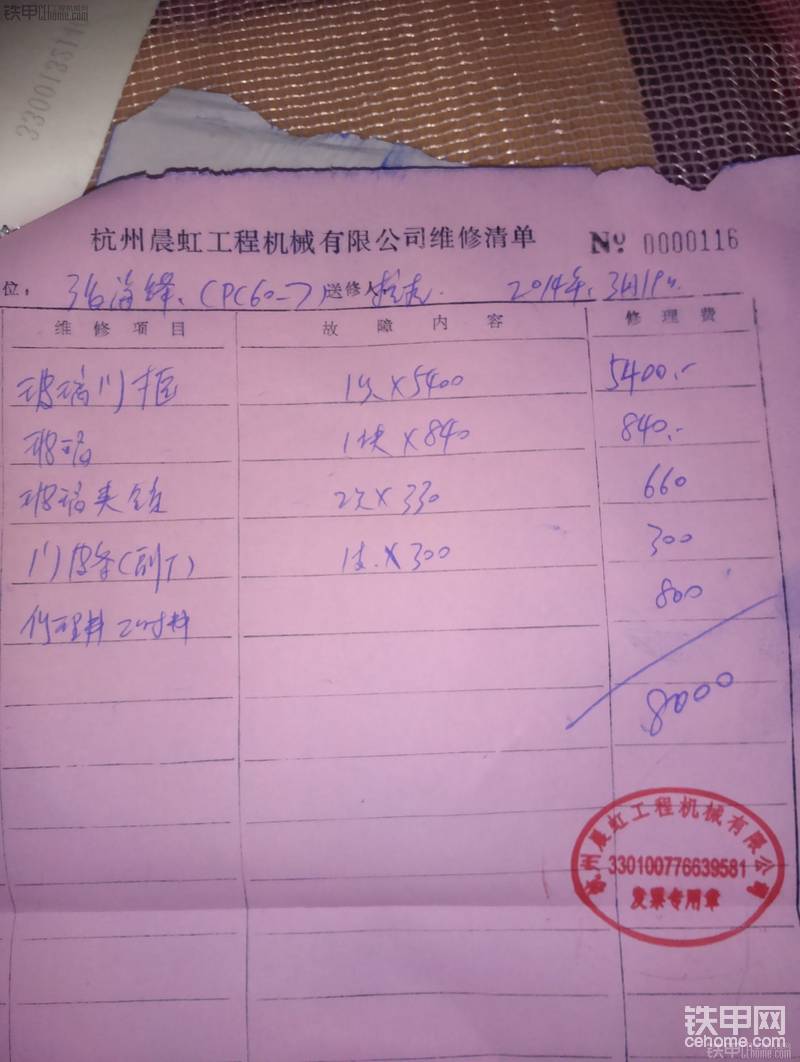 铁甲网 铁甲工程机械网
cehome.com
33001321
杭州晨虹工程机械有限公司维修清单 № 0000116
位: 张海锋、(PC60-7) 送修人 2014年 3月19日
维修项目 故障内容 修理费
玻璃门框 1只×5400 5400.-
玻璃 1块×840 840.-
玻璃夹 2只×330 660
门皮条(副厂) 1支×300 300
修理 800
8000
杭州晨虹工程机械有限公司
330100776639581
发票专用章
铁甲网
cehome.com